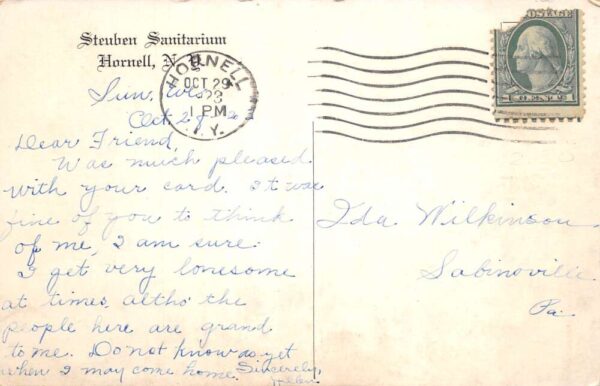 Steuben Sanitarium
Hornell, N. Y.
HORNELL
OCT 29
1 PM
N.Y.
Sun. Eve.
Oct. 28
Dear Friend,
Was much pleased
with your card. It was
fine of you to think
of me, I am sure.
I get very lonesome
at times, altho the
people here are grand
to me. Do not know as yet
when I may come home. Sincerely,
Helen
POSTAGE
1 CENT 1
Ida Wilkinson
Sabinsville
Pa.